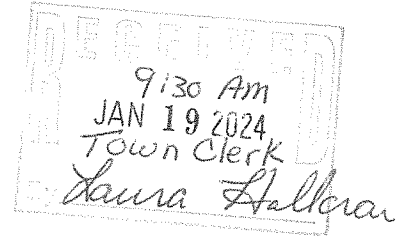 RECEIVED
9:30 AM
JAN 19 2024
Town Clerk
Laura Halloran